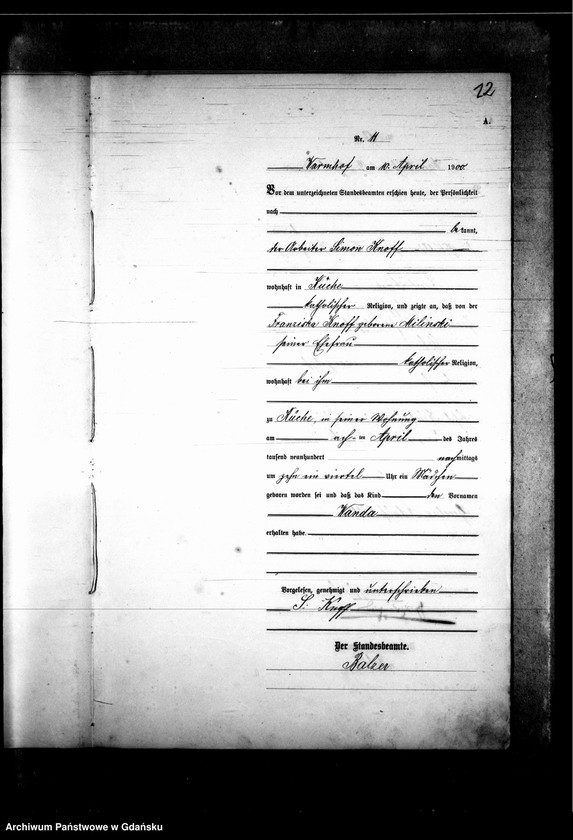 12
A.
Nr. 11
Warmhof am 10. April 1900
Vor dem unterzeichneten Standesbeamten erschien heute, der Persönlichkeit
nach
bekannt,
der Arbeiter Simon Knoff
wohnhaft in Küche
katholischer Religion, und zeigte an, daß von der
Franziska Knoff geborene Milinski
seiner Ehefrau
katholischer Religion,
wohnhaft bei ihm
zu Küche, in seiner Wohnung
am ten April des Jahres
tausend neunhundert nachmittags
um zehn ein viertel Uhr ein Mädchen
geboren worden sei und daß das Kind den Vornamen
Wanda
erhalten habe.
Vorgelesen, genehmigt und unterschrieben
S. Knoff
Der Standesbeamte.
Archiwum Państwowe w Gdańsku